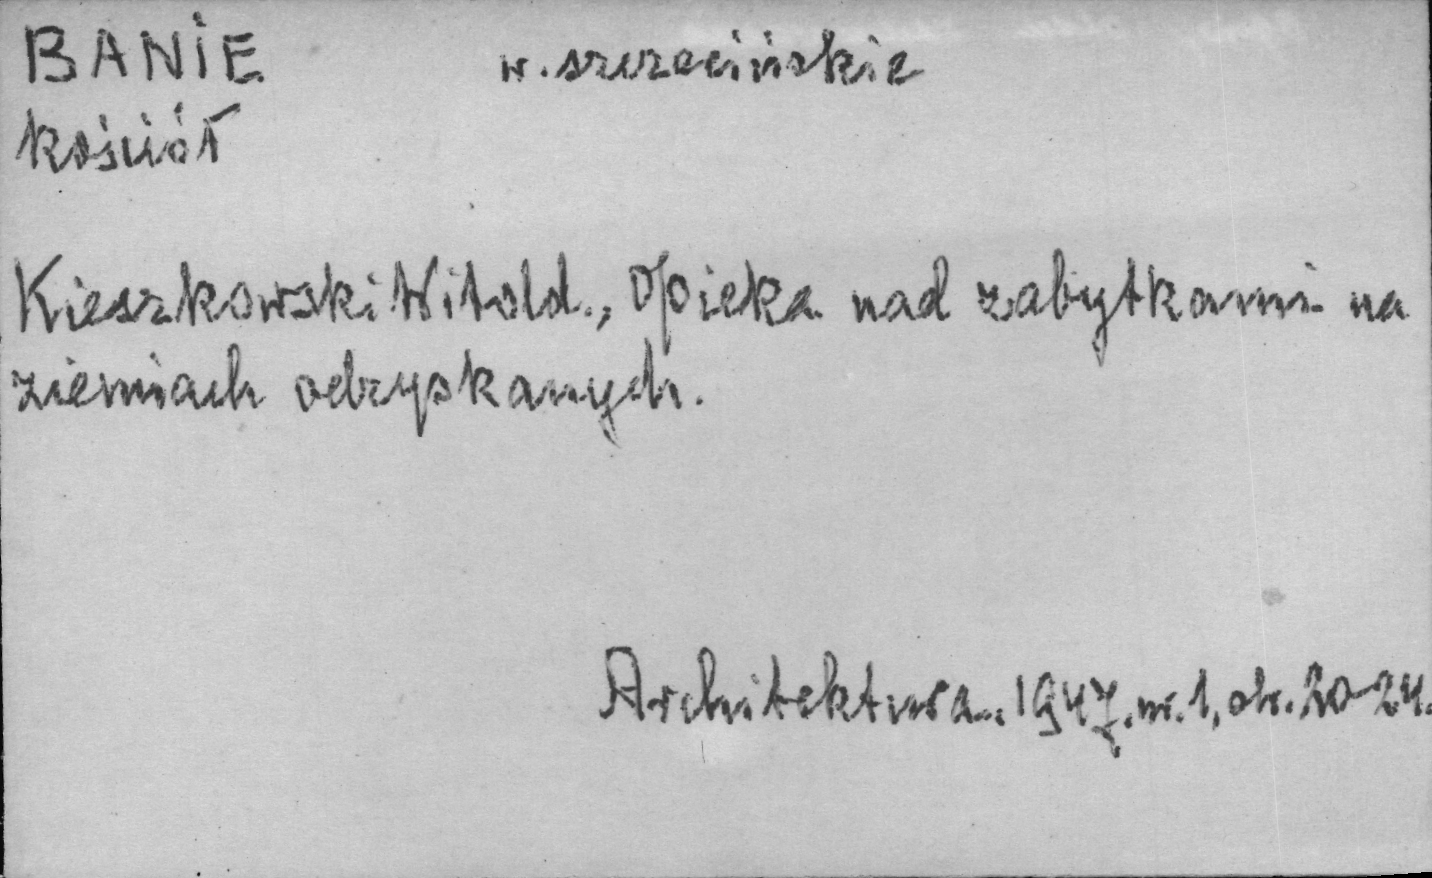 BANIE w. szczecińskie
kościół
Kieszkowski Witold., Opieka nad zabytkami na
ziemiach odzyskanych.
Architektura. 1947. nr. 1, str. 20-24.